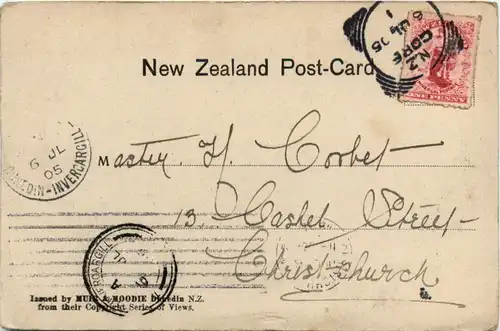 6 JL 05
N.Z
GORE
ONE PENNY
New Zealand Post-Card
6 JL
05
DUNEDIN-INVERCARGILL
Master H. Corbet
13, Cashel Street
Christchurch
INVERCARGILL
Issued by MUIR & MOODIE Dunedin N.Z.
from their Copyright Series of Views.